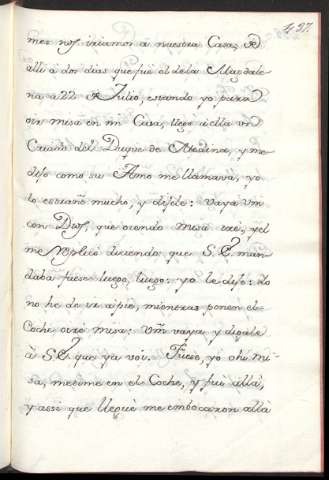 497.
mer nos iriamos â nuestra Casa, de
alli â dos dias que fué el de la Magdale
na â 22 de Julio, estando yo para
oir misa en mi Casa, llegó â ella un
Criado del Duque de Medina, y me
dijo como su Amo me llamava, yo
lo estrañé mucho, y dijele: vaya Vm
con Dios, que oiendo Misa iré, y el
me replicó diciendo, que S.E. man
daba fuese luego, luego: yo le dijo: Yo
no he de ir a pié, mientras ponen el
Coche oiré misa: Vm vaya, y digale
â S.E. que ya voi. Fuese, yo ohi mi-
sa, metime en el Coche, y fuí allá,
y assi que llegué me embocaron allá